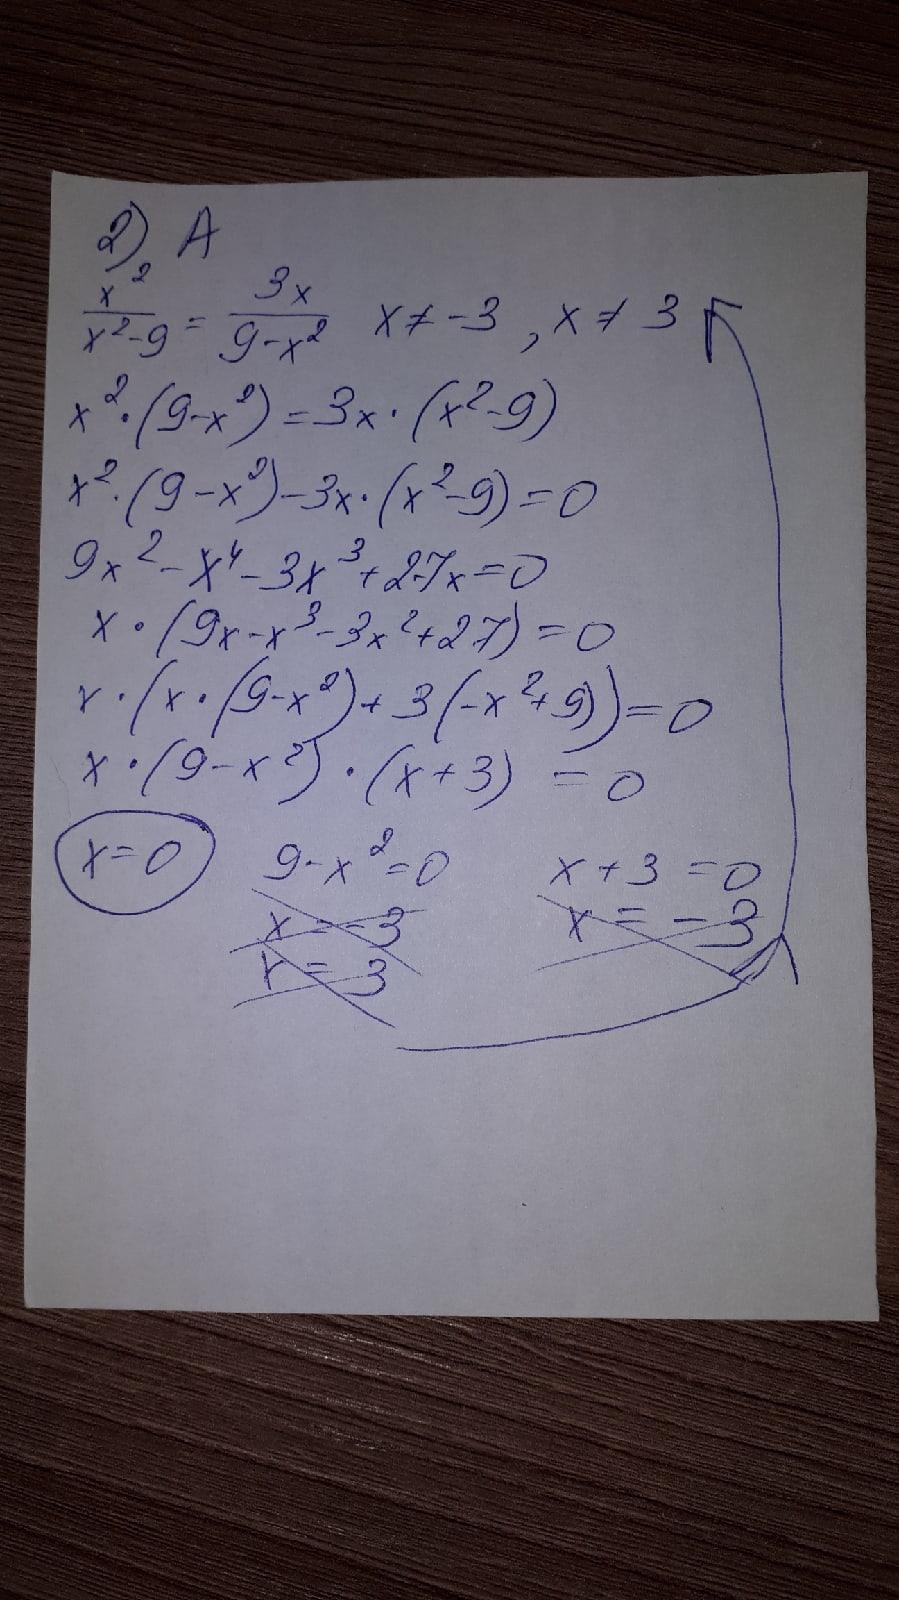 2) A
x²/(x²-9) = 3x/(9-x²) x≠-3, x≠3
x²·(9-x²)=3x·(x²-9)
x²·(9-x²)-3x·(x²-9)=0
9x²-x⁴-3x³+27x=0
x·(9x-x³-3x²+27)=0
x·(x·(9-x²)+3(-x²+9))=0
x·(9-x²)·(x+3)=0
x=0 9-x²=0 x+3=0
x=-3 x=-3
x=3